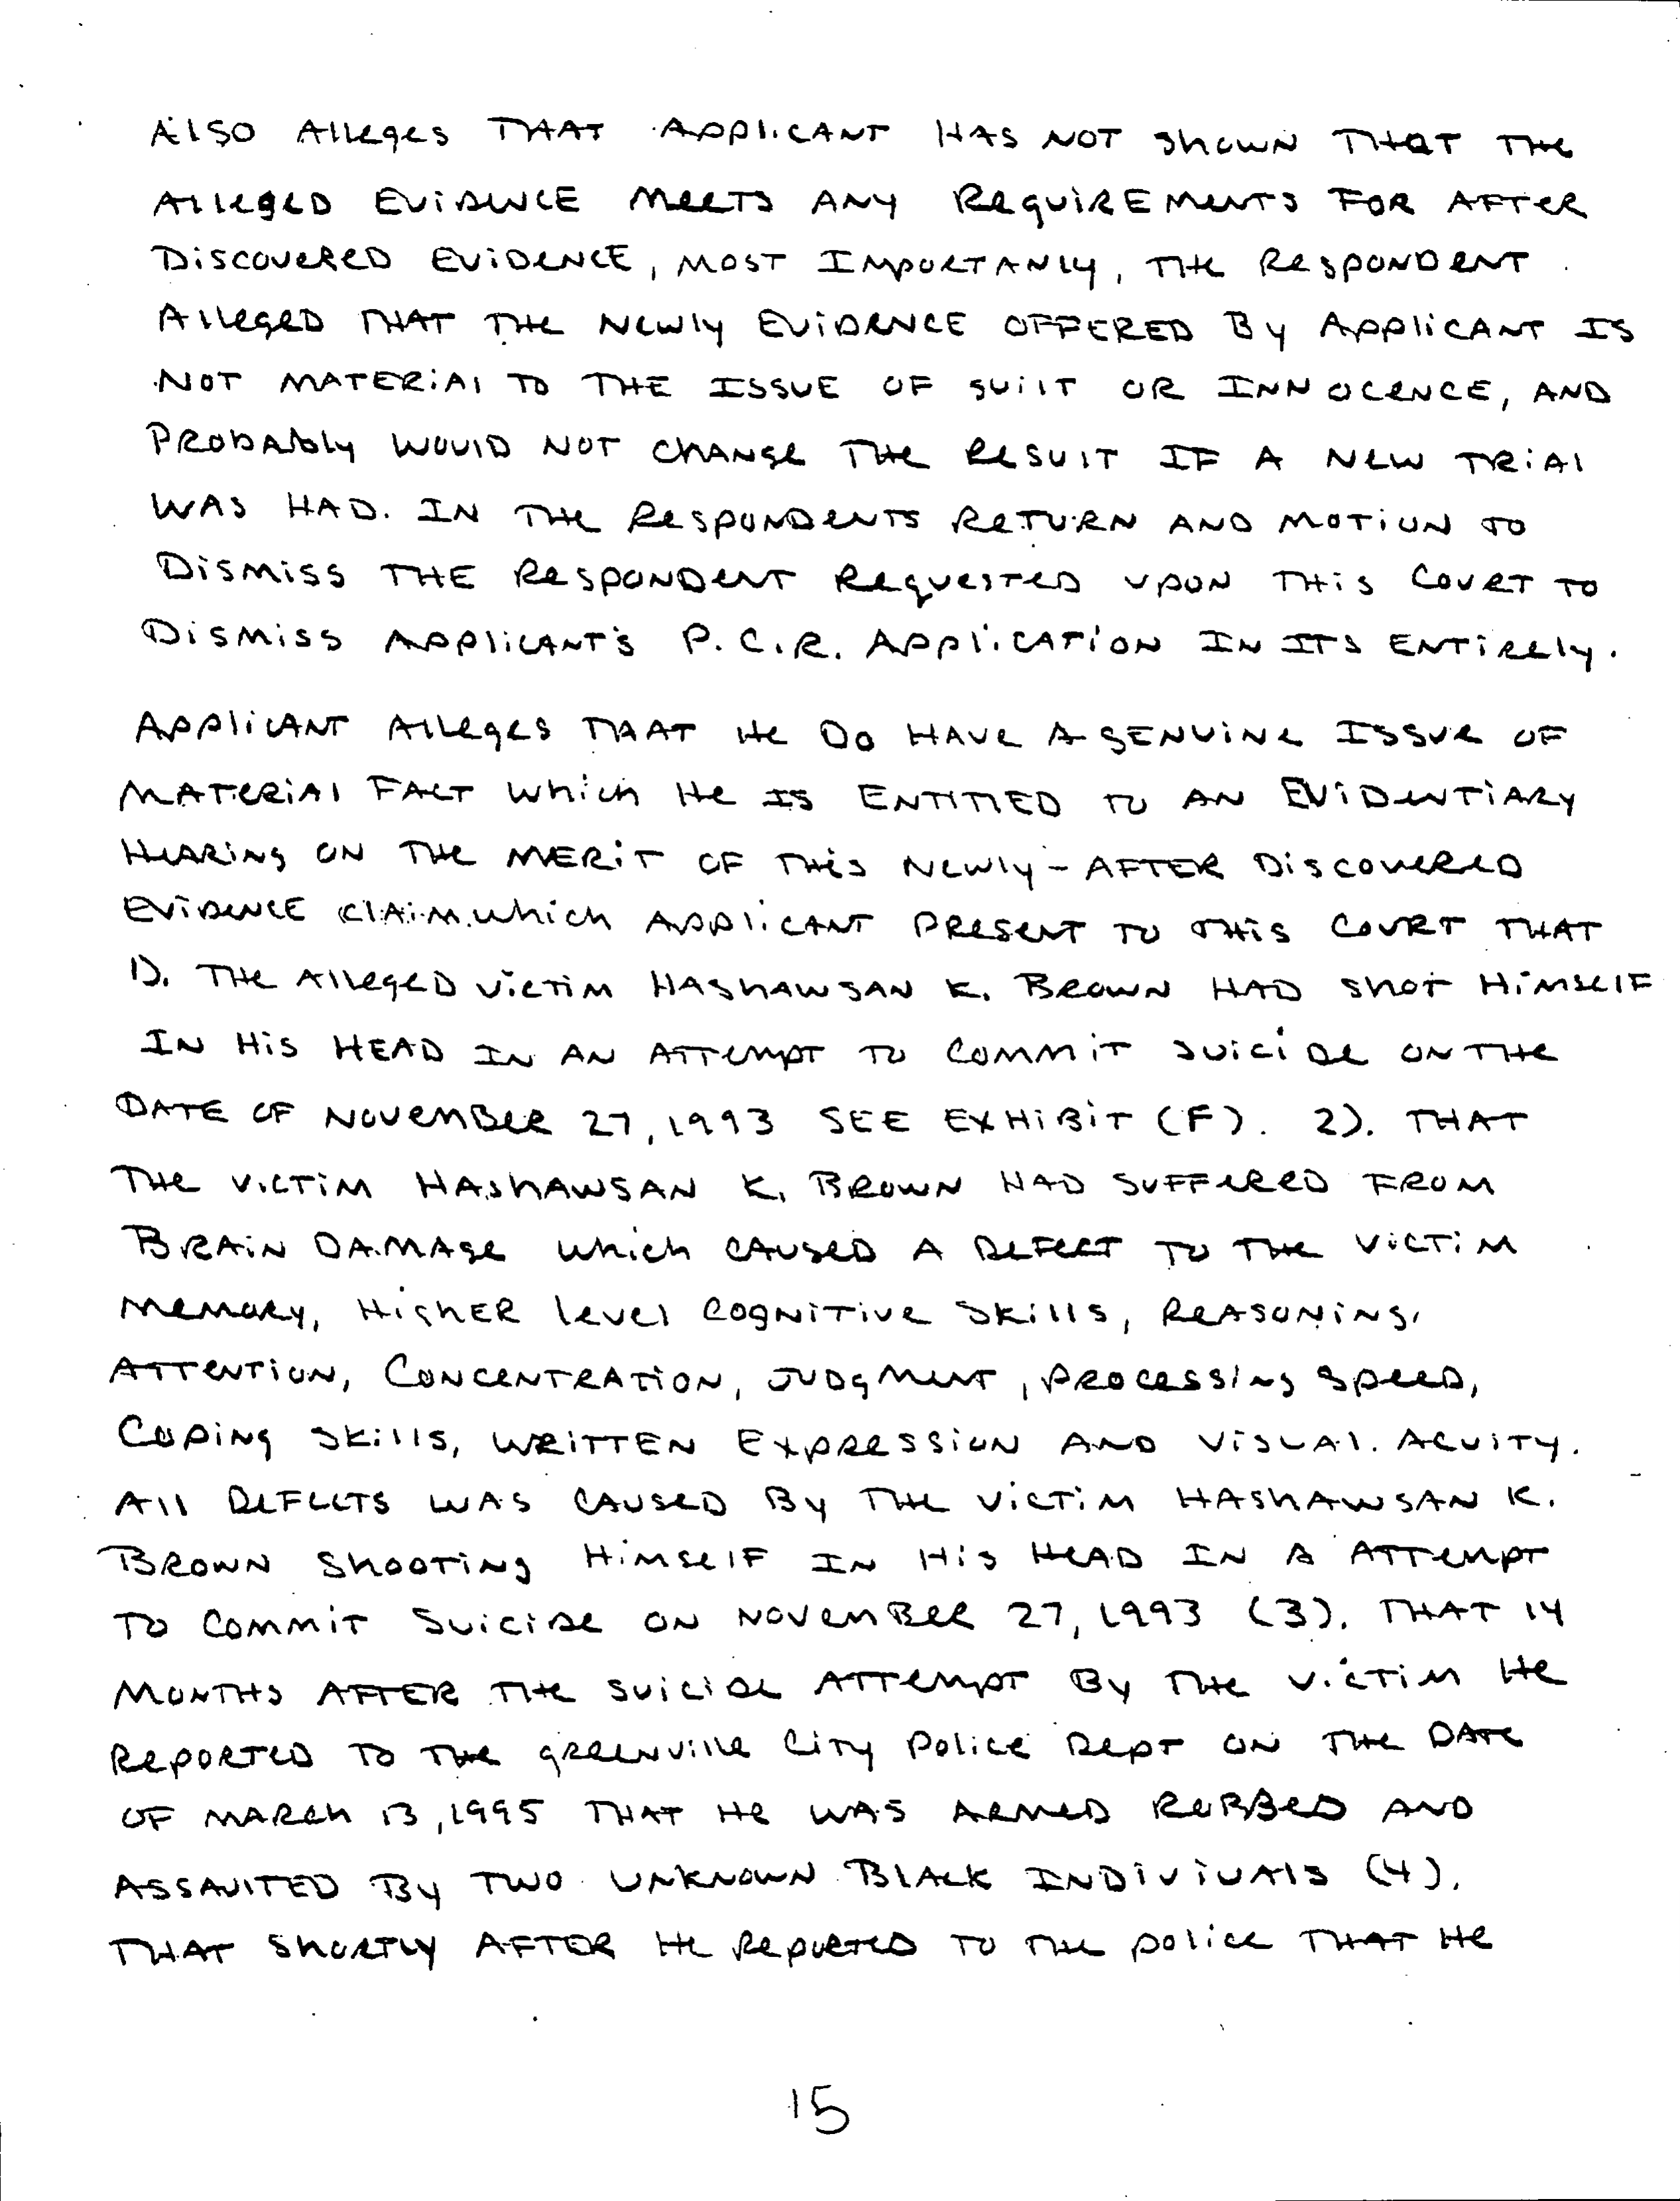 Also Alleges THAT Applicant HAS NOT shown THAT THe
Alleged Evidence Meets ANY Requirements FOR After
Discovered Evidence, Most Importanly, The Respondent
Alleged THAT THE Newly Evidence OFFERED By Applicant IS
NOT MATERial TO THE ISSUE OF guilt OR INNOCENCE, AND
Probably Would NOT change The Result IF A New TRial
WAS HAD. IN The Respondents Return AND Motion to
Dismiss THE Respondent Requested upon THis Court TO
Dismiss Applicant's P.C.R. Application IN ITS ENTirely.
Applicant Alleges THAT He Do HAVE A genuine Issue OF
MATERial FACT which He IS ENTITIED TO AN EviDentiary
Hearing ON THE MERiT OF THis Newly-AFTER Discovered
Evidence Claim.which Applicant Present TO THis Court THAT
1). THE Alleged victim HAShAWSAN K. Brown HAD shot Himself
IN His HEAD IN AN ATTempt TO Commit Suicide ON THE
DATE OF November 27, 1993 SEE EXHiBiT (F). 2). THAT
The victim HAShAWSAN K. BROWN HAD SUFFERED FROM
BRAiN DAMAge which CAUSED A DEFECT TO THE VicTiM
Memory, HigHER level COGNiTive Skills, REASoning,
ATTENTion, CONCENTRATion, JUDgment, Processing Speed,
Coping Skills, WRiTTEN Expression AND VisuAl. Acuity.
All DEFECTS WAS CAUSED By THE VicTiM HAShAWSAN K.
BROWN Shooting Himself IN His HEAD IN A ATTempt
TO Commit Suicide ON NovemBer 27, 1993 (3). THAT 14
MONTHS AFTER THE suicide ATTempt By The victim He
Reported TO THe greenville City Police Dept ON THE DATE
OF MARch 13, 1995 THAT He WAS ARMED RoBBeD AND
ASSAulTED By TWO UNKNOWN BlACK INDiViuAls (4).
THAT Shortly AFTER He Reported TO THE police THAT He
15